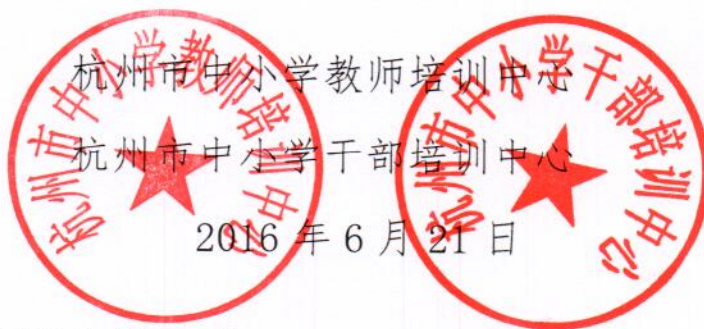 杭州市中小学教师培训中心
杭州市中小学干部培训中心
2016年6月21日
杭州市中小学教师培训中心
杭州市中小学干部培训中心